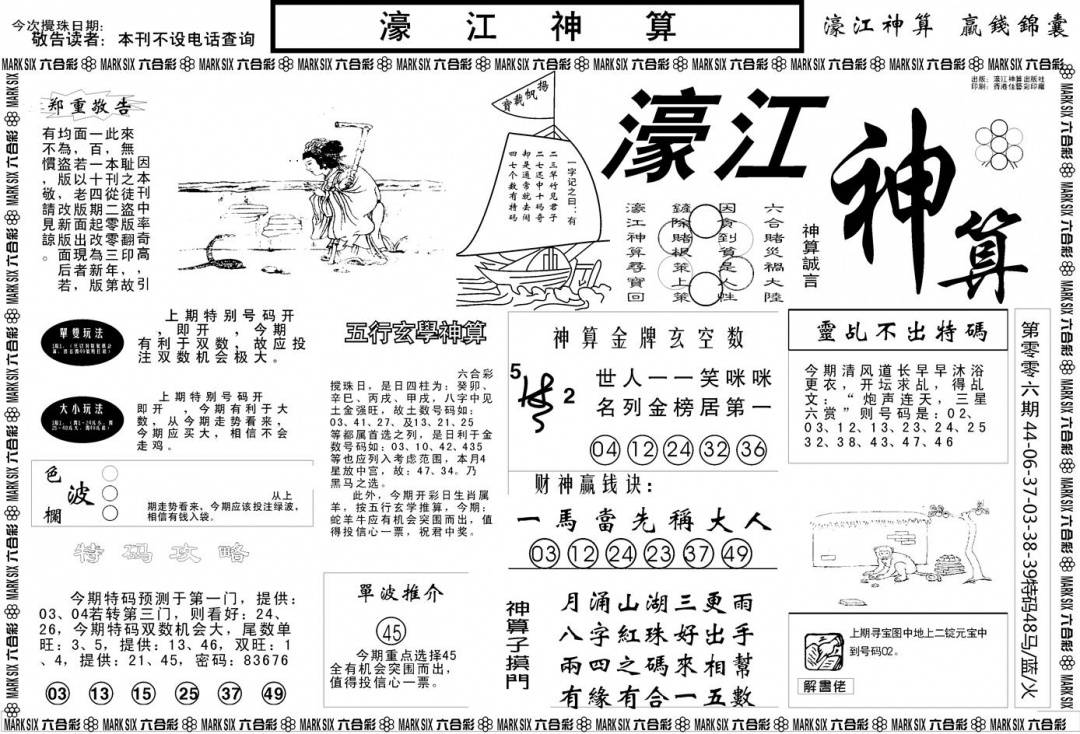 今次攪珠日期:
敬告读者：本刊不设电话查询
濠江神算
濠江神算 贏錢錦囊
MARK SIX 六合彩 MARK SIX 六合彩 MARK SIX 六合彩 MARK SIX 六合彩 MARK SIX 六合彩 MARK SIX 六合彩 MARK SIX 六合彩 MARK SIX 六合彩 MARK SIX 六合彩 MARK SIX 六合彩 MARK SIX 六合彩
出版：濠江神算出版社
印刷：香港佳藝彩印廠
郑重敬告
因本刊中奇高，引
來無恥之徒盜率翻印，故
此，本刊從二零零三年第
一百一十四期起改為新版，
面若以老版面出現者，
均為盜版，敬請見諒。
有不慣
揚帆載寶
一字记之曰：有
二三草竹见君子
二七还中十码奇
却是通常就去闹
四七个数有特码
濠江
神算
六合賭災禍大陸
因貪到貧是人性
鏟除賭根策上策
濠江神算尋寶回
神算誠言
單雙玩法
上期特别号码开
，即开 ，今期
有利于双数，故应投
注双数机会极大。
大小玩法
上期特别号码开
即开 ，今期有利于大
数，从今期走势看来，
今期应买大，相信不会
走鸡。
色波欄
从上
期走势看来，今期应该投注绿波，
相信有钱入袋。
特码攻略
今期特码预测于第一门，提供：
03、04若转第三门，则看好：24、
26，今期特码双数机会大，尾数单
旺：3、5，提供：13、46，双旺：1
、4，提供：21、45，密码：83676
03 13 15 25 37 49
五行玄學神算
六合彩
搅珠日，是日四柱为：癸卯、
辛巳、丙戌、甲戌，八字中见
土金强旺，故土数号码如：
03、41、27、及13、21、25
等都属首选之列，是日利于金
数号码如：03、10、42、435
等也应列入考虑范围，本月4
星放中宫，故：47、34。乃
黑马之选。
此外，今期开彩日生肖属
羊，按五行玄学推算，今期：
蛇羊牛应有机会突围而出，值
得投信心一票，祝君中奖。
單波推介
45
今期重点选择45
全有机会突围而出，
值得投信心一票。
神算金牌玄空数
5
2
世人一一笑咪咪
名列金榜居第一
04 12 24 32 36
财神赢钱诀：
一馬當先稱大人
03 12 24 23 37 49
神算子摸門
月涌山湖三更雨
八字紅珠好出手
兩四之碼來相幫
有緣有合一五數
靈乩不出特碼
今期清风道长早早沐浴
更衣，开坛求乩，得乩
文：“炮声连天，三星
六赏”则号码是：02、
03、12、13、23、24、25
32、38、43、47、46
上期寻宝图中地上二锭元宝中
到号码02。
解畫佬
第零零六期44-06-37-03-38-39特码48马/蓝/火
MARK SIX 六合彩 MARK SIX 六合彩 MARK SIX 六合彩 MARK SIX 六合彩 MARK SIX 六合彩 MARK SIX 六合彩 MARK SIX 六合彩 MARK SIX 六合彩 MARK SIX 六合彩 MARK SIX 六合彩 MARK SIX 六合彩